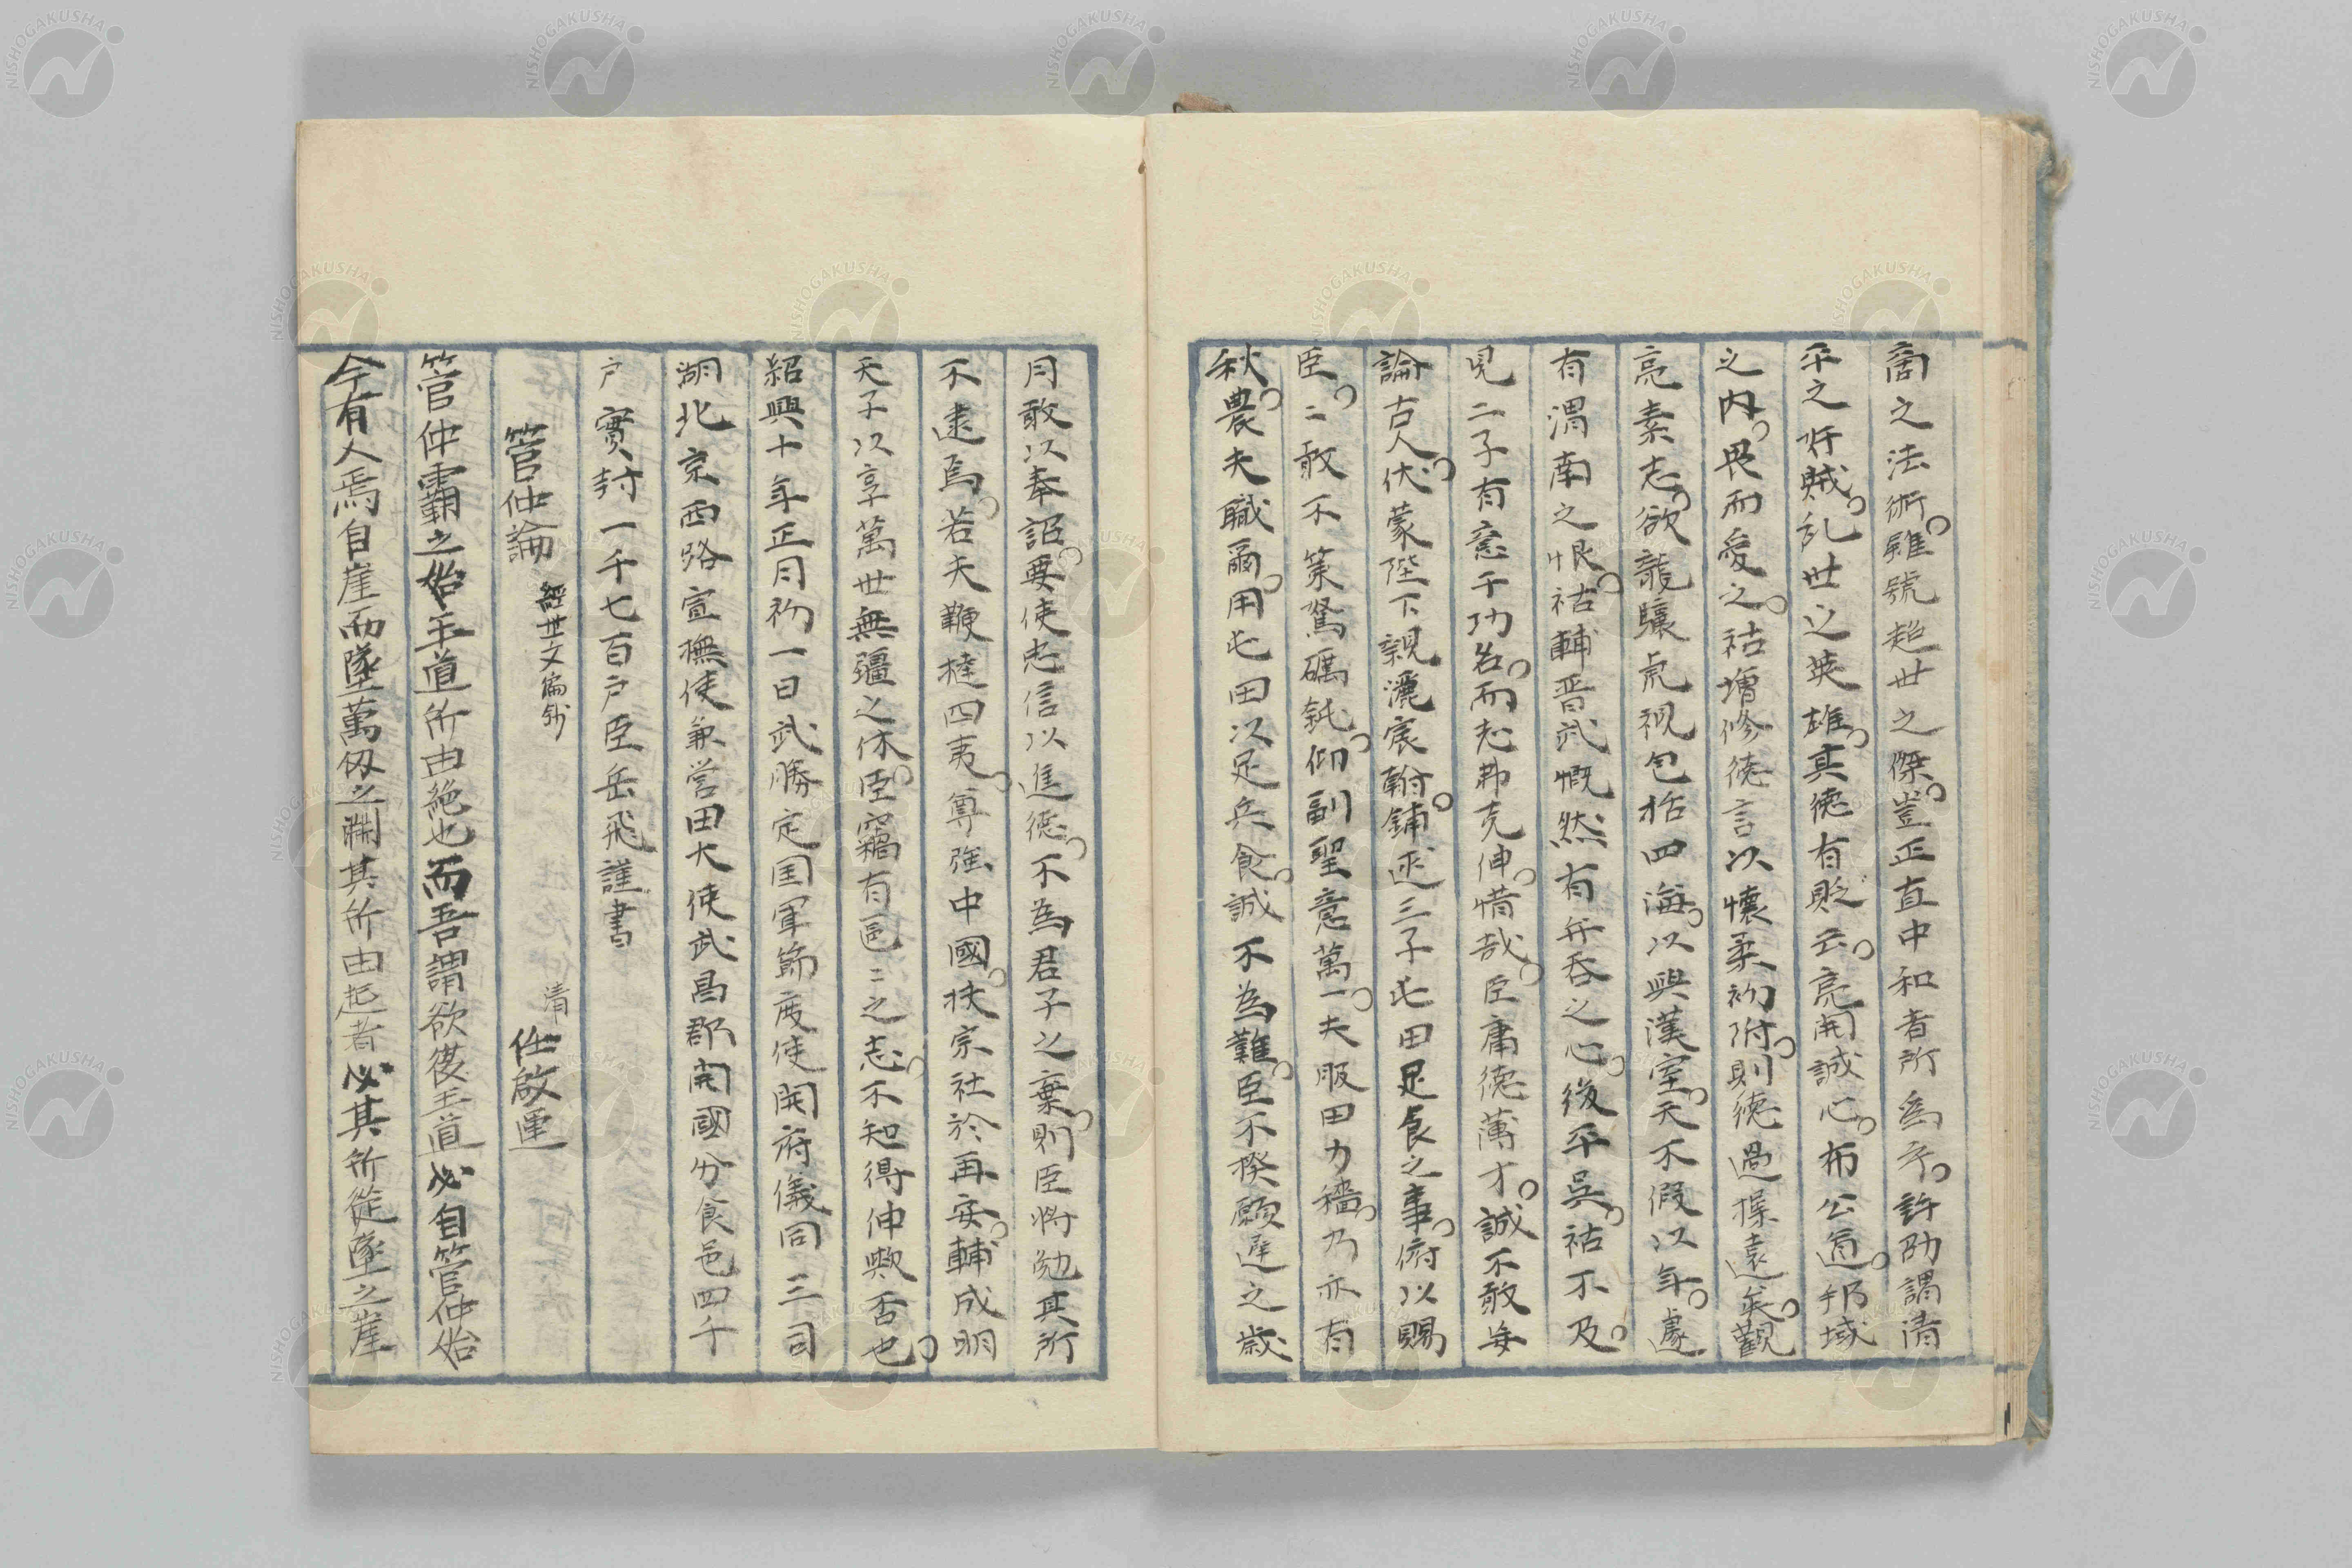 商之法術。雖號超世之傑。豈正直中和者所爲乎。許劭謂清
平之奸賊。乱世之英雄。其德有貶云。亮開誠心。布公道。邦域
之内。畏而愛之。祜増修德言以懷柔初附。則德過操遠矣。觀
亮素志。欲龍驤虎視包括四海。以興漢室。天不假以年。遽
有渭南之恨。祜輔晋武慨然有并吞之心。後平吳。祜不及。
見二子有意于功名。而志弗克伸。惜哉。臣庸德薄才。誠不敢妄
論古人。伏蒙陛下親灑宸翰。鋪述三子屯田足食之事。俯以賜
臣。二敢不策駑礪鈍。仰副聖意萬一。夫服田力穡。乃亦有
秋。農夫職爾。用屯田以足兵食。誠不為難。臣不揆願遅之歳
月敢以奉詔。要使忠信以進德。不為君子之棄。則臣將勉其所
不逮焉。若夫鞭撻四夷。尊强中國。扶宗社於再安。輔成明
天子以享萬世無疆之休。臣竊有區二之志。不知得伸歟否也。
紹興十年正月初一日武勝定国軍節度使開府儀同三司
湖北京西路宣撫使兼営田大使武昌郡開國公食邑四千
户實封一千七百户臣岳飛謹書
管仲論 經世文偏鈔 清 任啟運
管仲霸之始王道所由絶也而吾謂欲復王道必自管仲始
今有人焉自崖而墜萬仭之淵其所由起者必其所從墜之崖